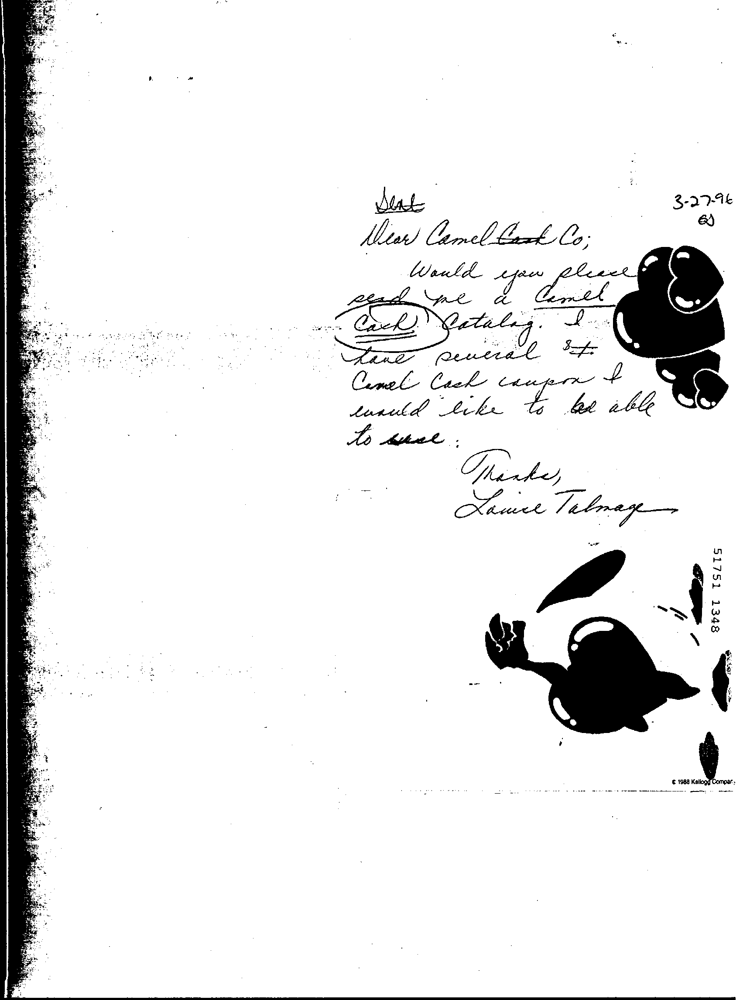 Sent
3-27-96
Dear Camel Cash Co;
Would you please
send me a Camel
Cash Catalog. I
have several
Camel Cash coupon I
would like to be able
to use.
Thanks,
Louise Talmage
51751 1348
© 1988 Kellogg Company